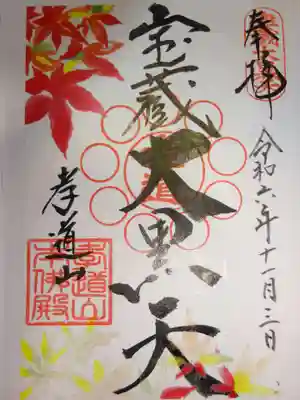 奉拝
令和六年十一月三日
宝蔵大黒天
道
孝道山
孝道山
本佛殿